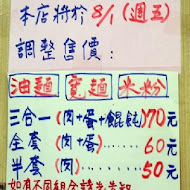 本店將於 8/1 (週五)
調整售價:
油麵 寬麵 米粉
三合一(肉+蛋+餛飩)70元
全套 (肉+蛋)...... 60元
半套 (肉)......... 50元
如有不同組合請先告知